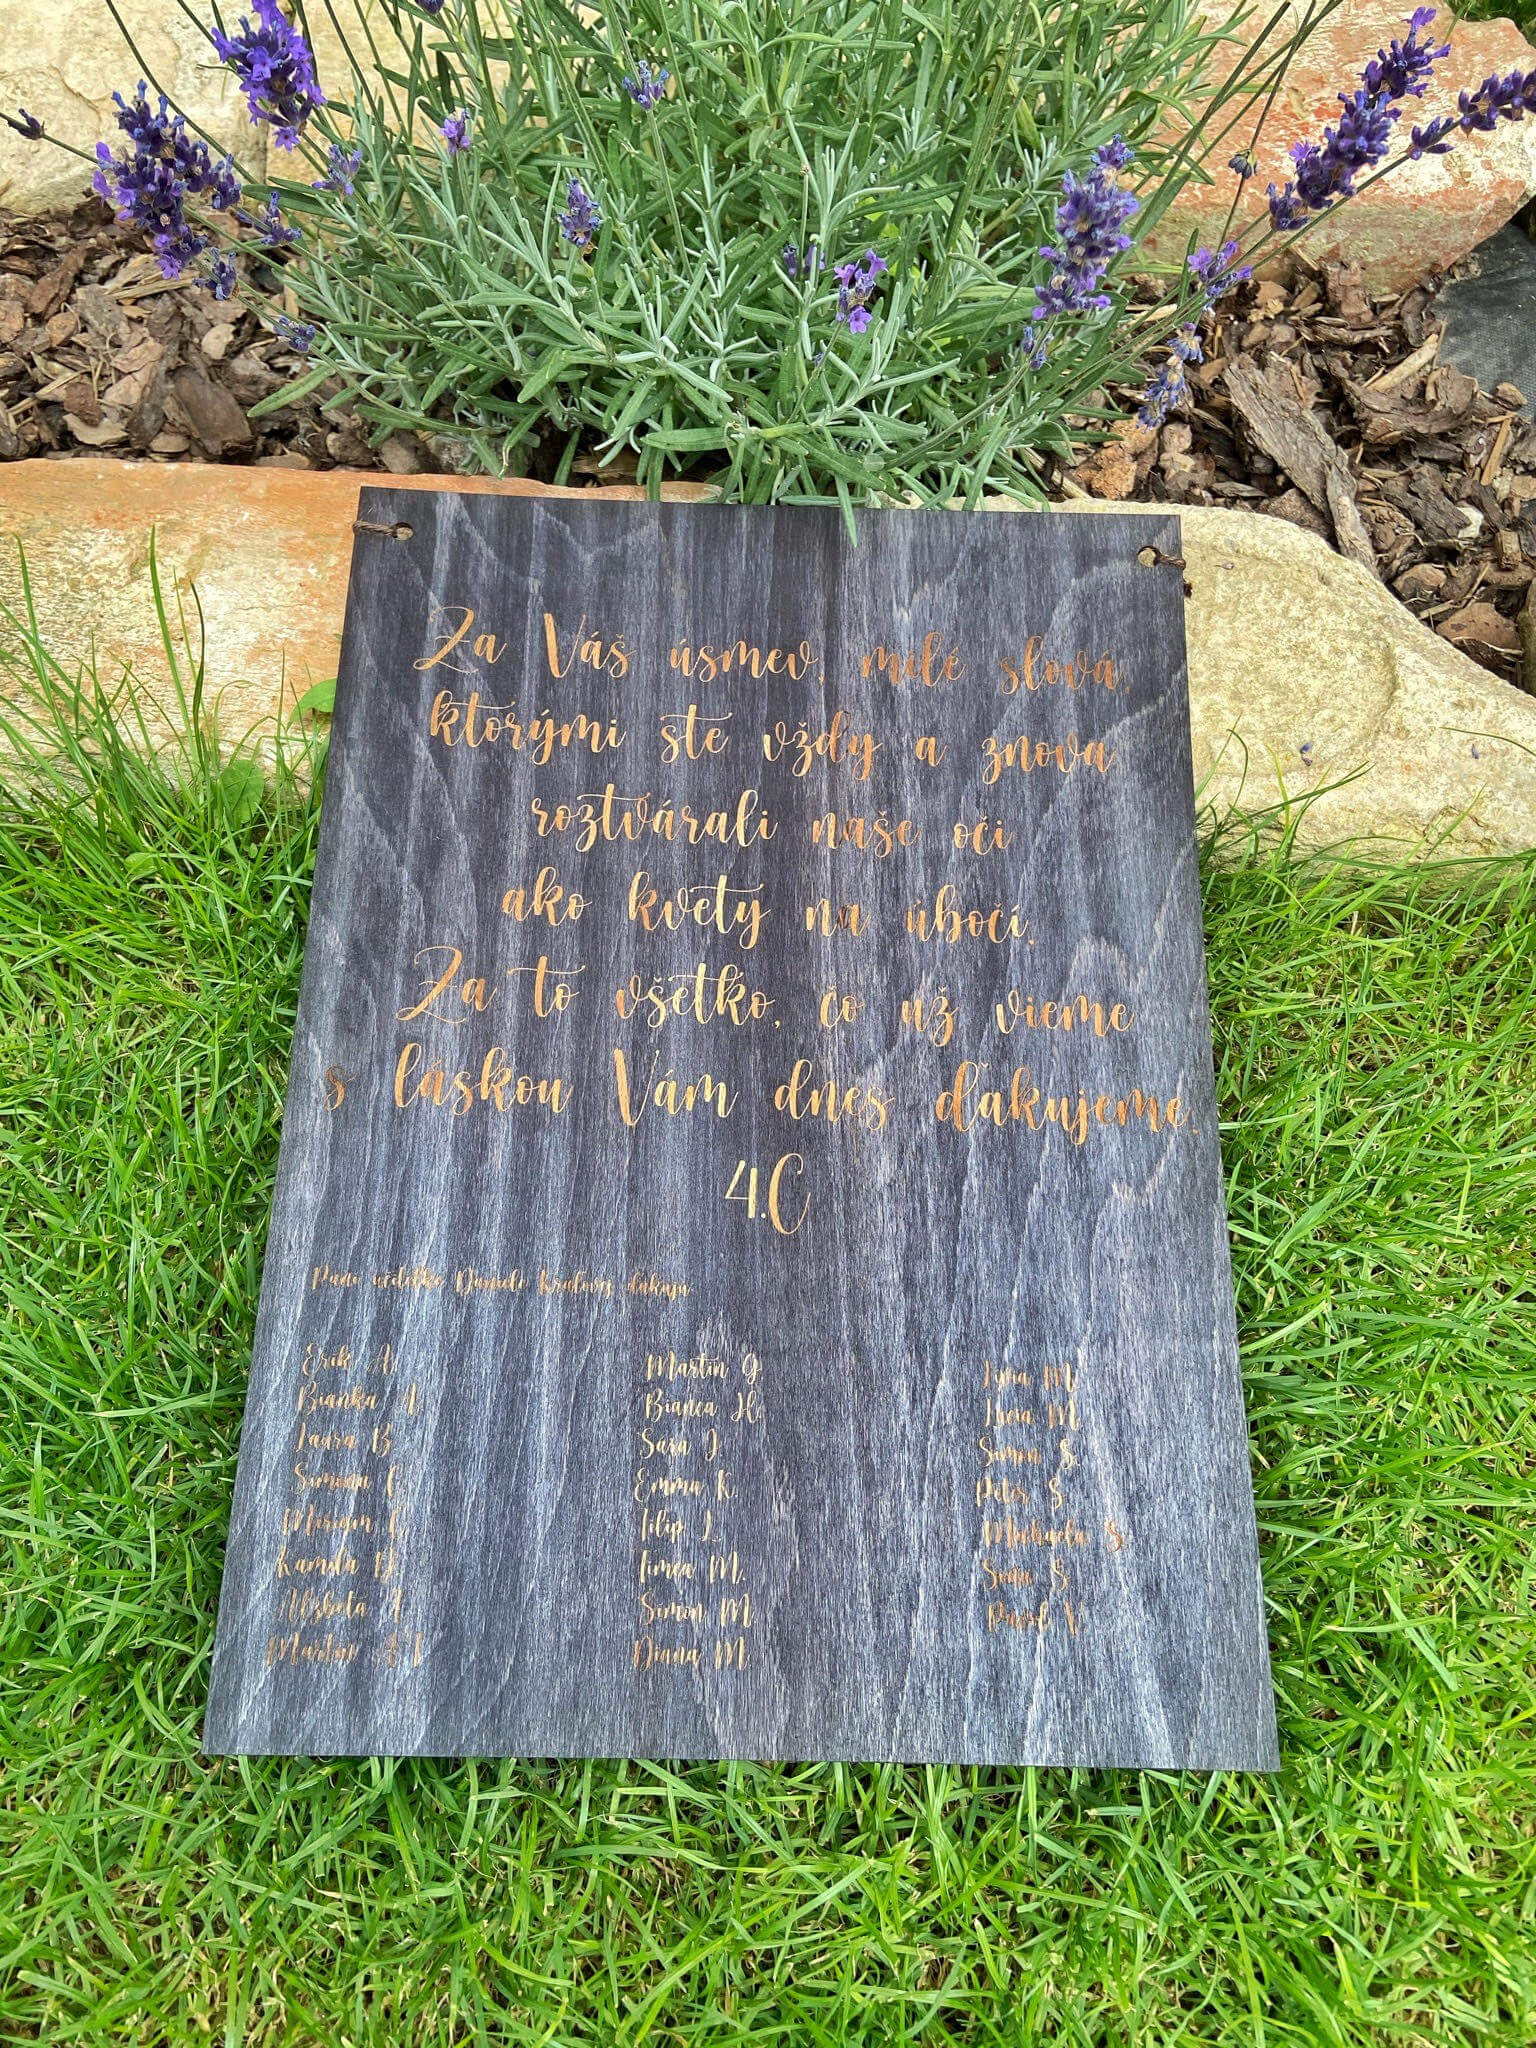 Za Váš úsmev, milé slová,
ktorými ste vždy a znova
roztvárali naše oči
ako kvety na úbočí.
Za to všetko, čo už vieme
s láskou Vám dnes ďakujeme.
4.C
Pani učiteľke Daniele Kráľovej ďakujú
Erik A.
Bianka A.
Laura B.
Simona
Miriam
Kamila D.
Alžbeta
Martin
Martin G.
Bianca H.
Sára J.
Emma K.
Filip L.
Timea M.
Simon M.
Diana M.
Lívia M.
Lucia M.
Simon S.
Peter S.
Michaela S.
Sofia S.
Pavol V.